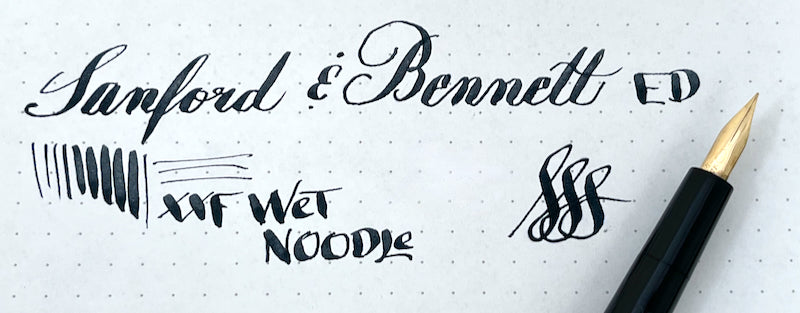 Sanford & Bennett ED
XXF Wet
Noodle